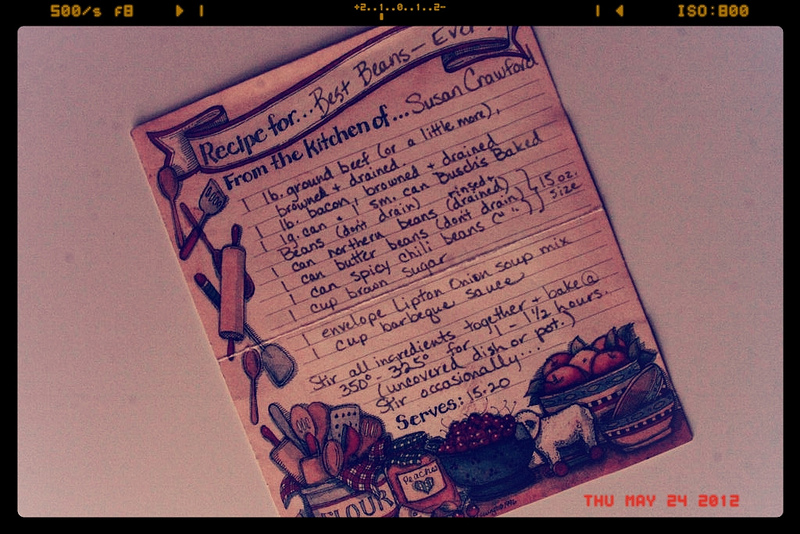 500/s f8
+2..1..0..1..2-
ISO:800
Recipe for... Best Beans - Ever!
From the kitchen of... Susan Crawford
1 lb. ground beef (or a little more),
browned + drained.
1 lb. bacon, browned + drained
1 lg. can + 1 sm. can Busch's Baked
Beans (don't drain)
1 can northern beans (drained) rinsed,
1 can butter beans (don't drain)
1 can spicy chili beans (" ") } 15 oz. size
1 cup brown sugar
1 envelope Lipton Onion soup mix
1 cup barbeque sauce
Stir all ingredients together + bake @
350° - 325° for 1 - 1 1/2 hours.
(uncovered dish or pot.)
Stir occasionally...
Serves: 15-20
Peaches
FLOUR
THU MAY 24 2012